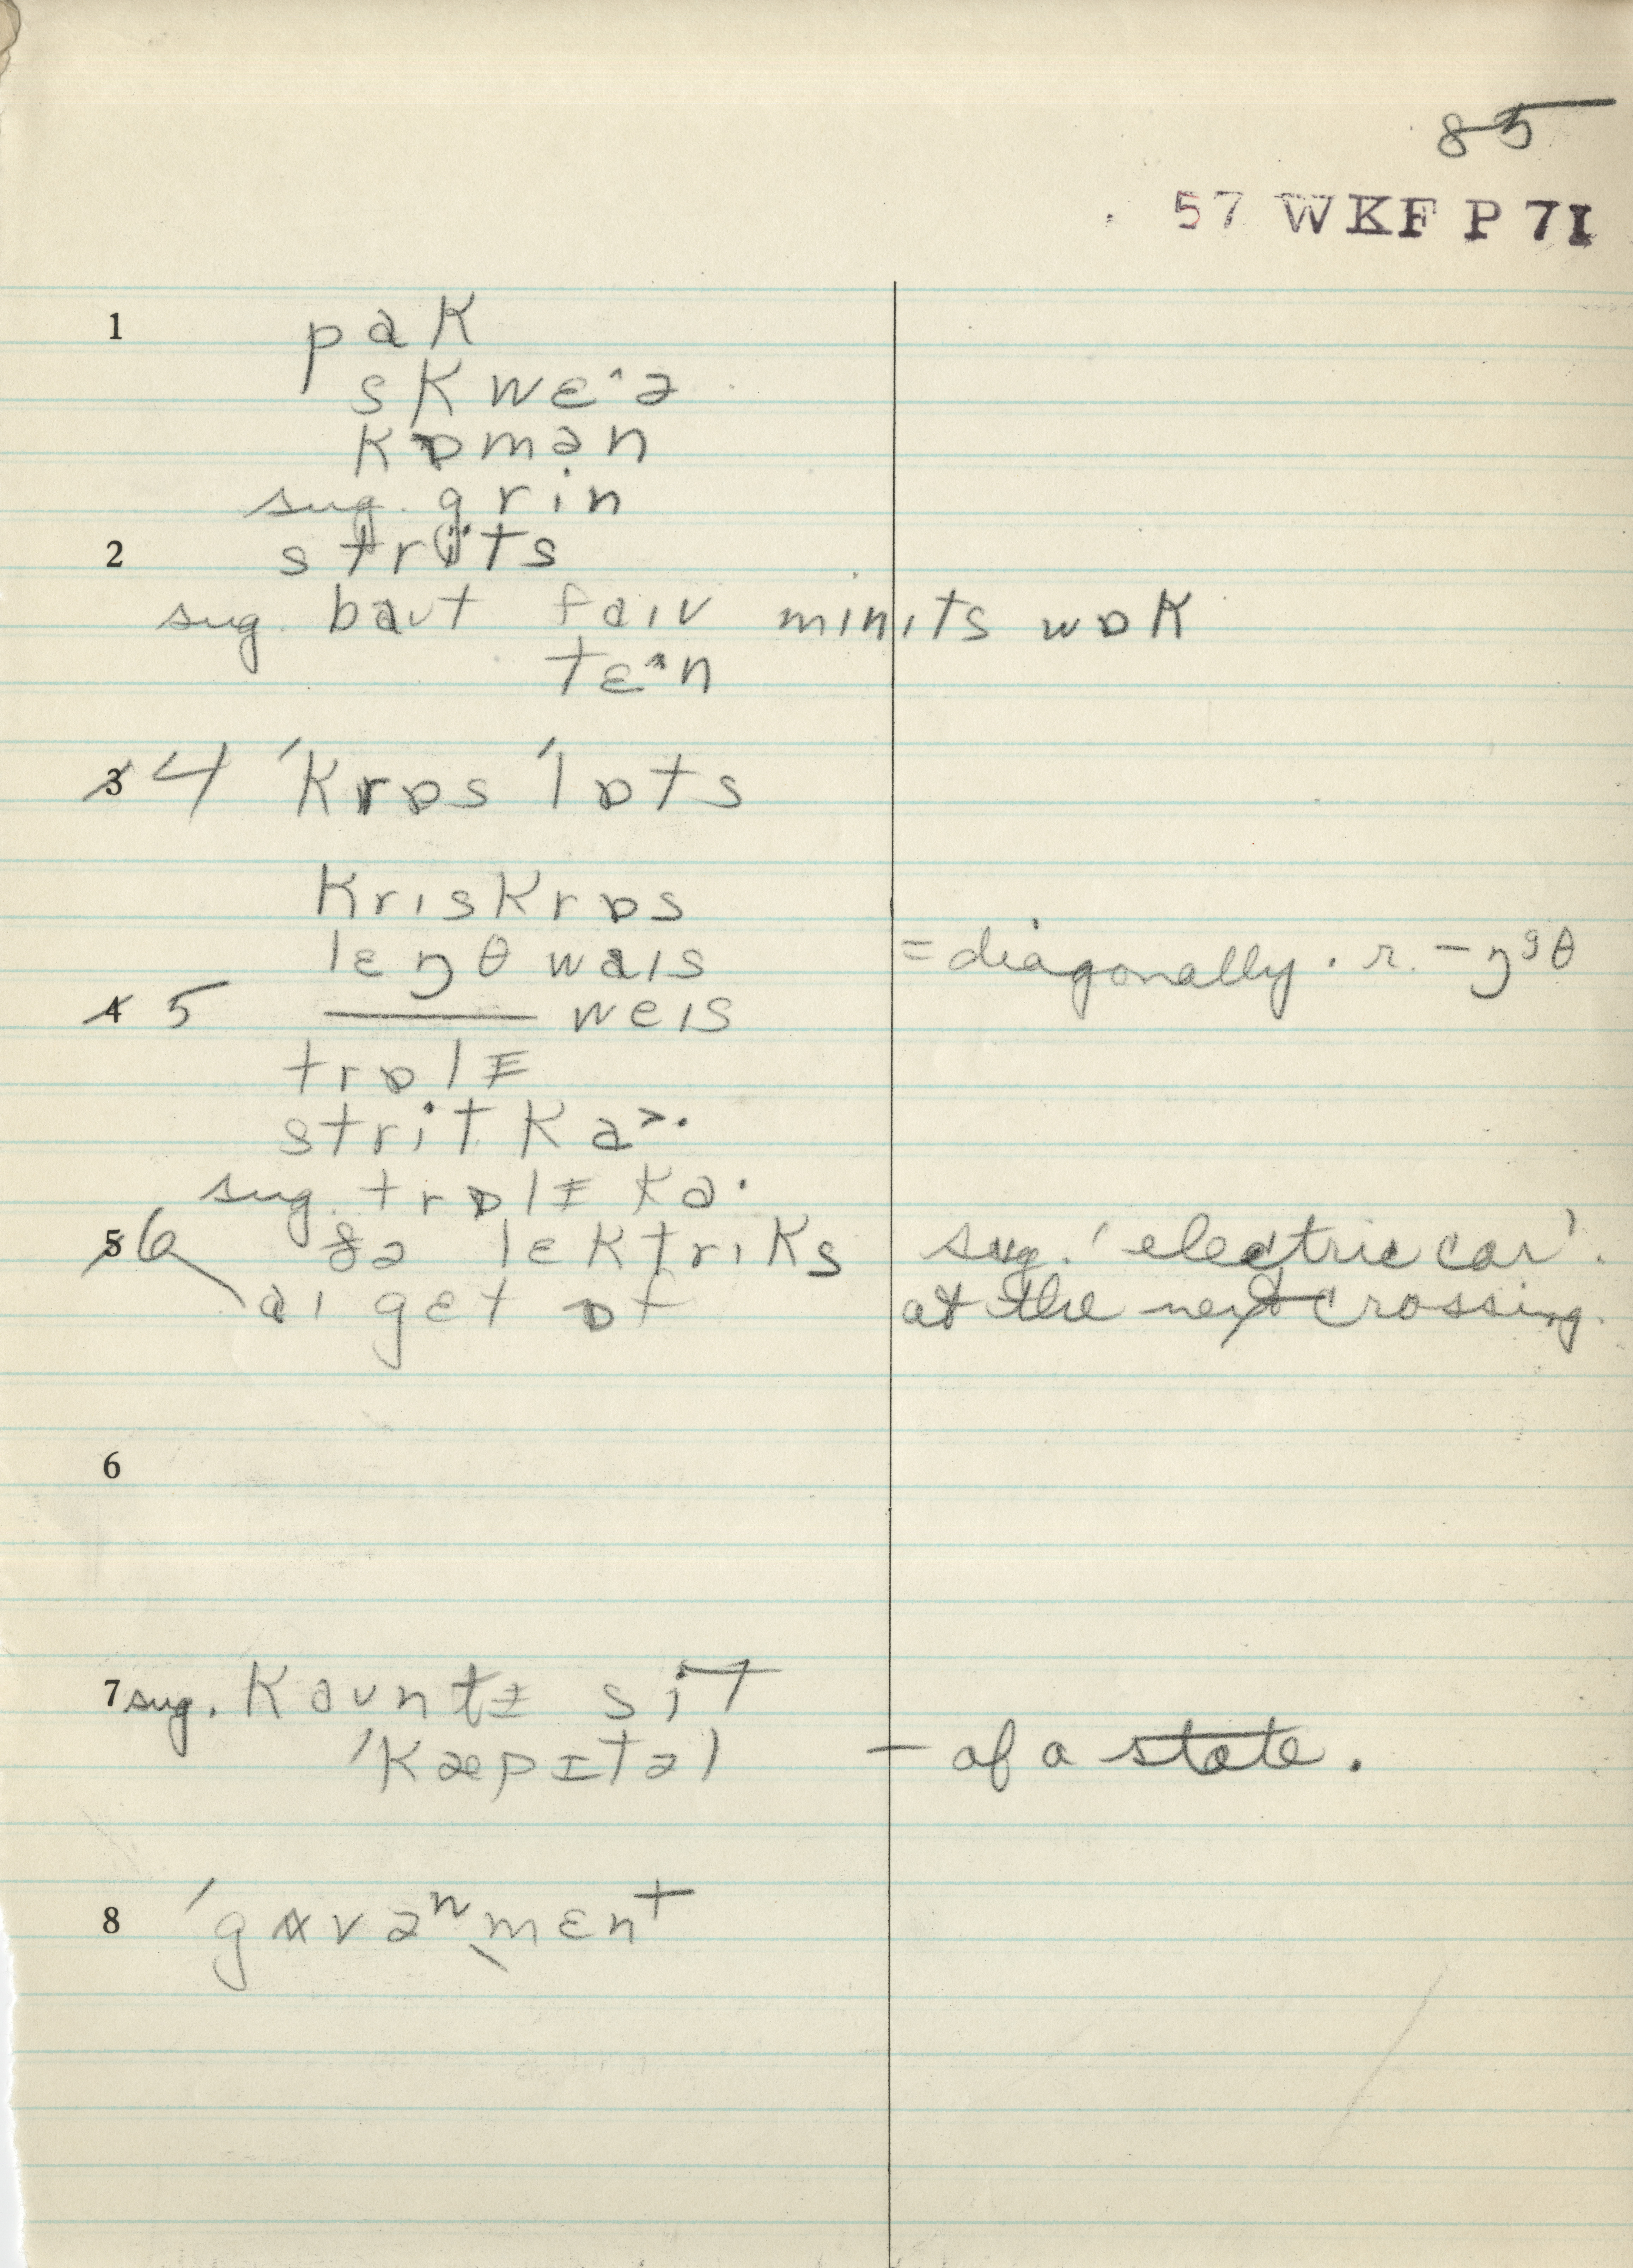 85
57 WKF P 71
1 pak
skwɛ^ə
kɒmən
sug. grin
2 strits
sug. baʊt faɪv minɪts wɒk
tɛ^n
3 4 ˈkrɒs ˈlɒts
krɪskrɒs
lɛŋθ waɪs = diagonally. r. – ŋᵍθ
4 5 ——— weɪs
trɒlɪ
strit ka>·
sug. trɒlɪ ka·
5 6 ðə lɛktrɪks sug. 'electric car'.
aɪ gɛt ɒf at the next crossing.
6
7 sug. kaʊntɪ sit
ˈkæpɪtəl – of a state.
8 ˈgʌvəⁿˌmɛnt